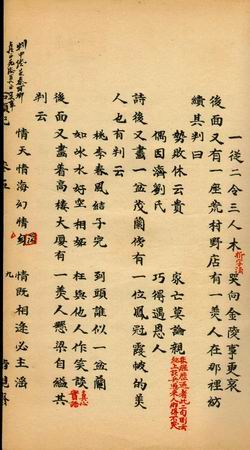 一從二令三人木
拆字法
哭向金陵事更哀
後面又有一座荒村野店有一美人在那裡紡
績其判曰
勢敗休云貴 家亡莫論親
非經歷過者此二句則云紙上談兵過來人那得不哭
偶因濟劉氏 巧得遇恩人
詩後又畫一盆茂蘭傍有一位鳳冠霞帔的美
人也有判云
桃李春風結子完 到頭誰似一盆蘭
如冰水好空相妬 枉與他人作笑談
真心實語
後面又畫着高樓大廈有一美人懸梁自縊其
判云
情天情海幻情 情既相逢必主淫
九